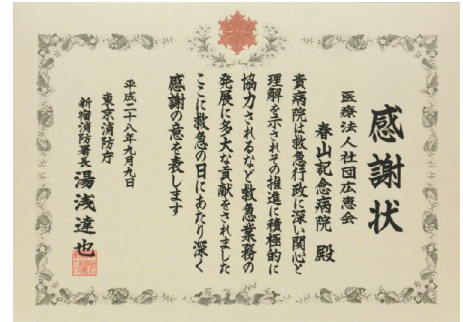 感謝状
医療法人社団広恵会
春山記念病院 殿
貴病院は救急行政に深い関心と
理解を示されその推進に積極的に
協力されるなど救急業務の
発展に多大な貢献をされました
ここに救急の日にあたり深く
感謝の意を表します
平成二十八年九月九日
東京消防庁
新宿消防署長 湯浅達也